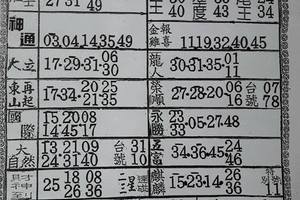 27·31 49
王 40 度 43 王 34
神通 03,04,14,35,49
金報雞喜 11,19,32,40,45
大立 17-29-31 06 30
龍人 30-31-35 01 11
東山再起 17-34 20 25 21 35
榮順 27-28-20 06 16 台 07 號 78
國際 15 20 08 14 45 17
永勝 23 33 -05-27-48
大自然 13 21 09 24 31 40 台 31 號 10
立富 34-36-45 24 46
財神到 25 18 08 26 36 二星
麒麟 15-23-14 26 36 特別號 11